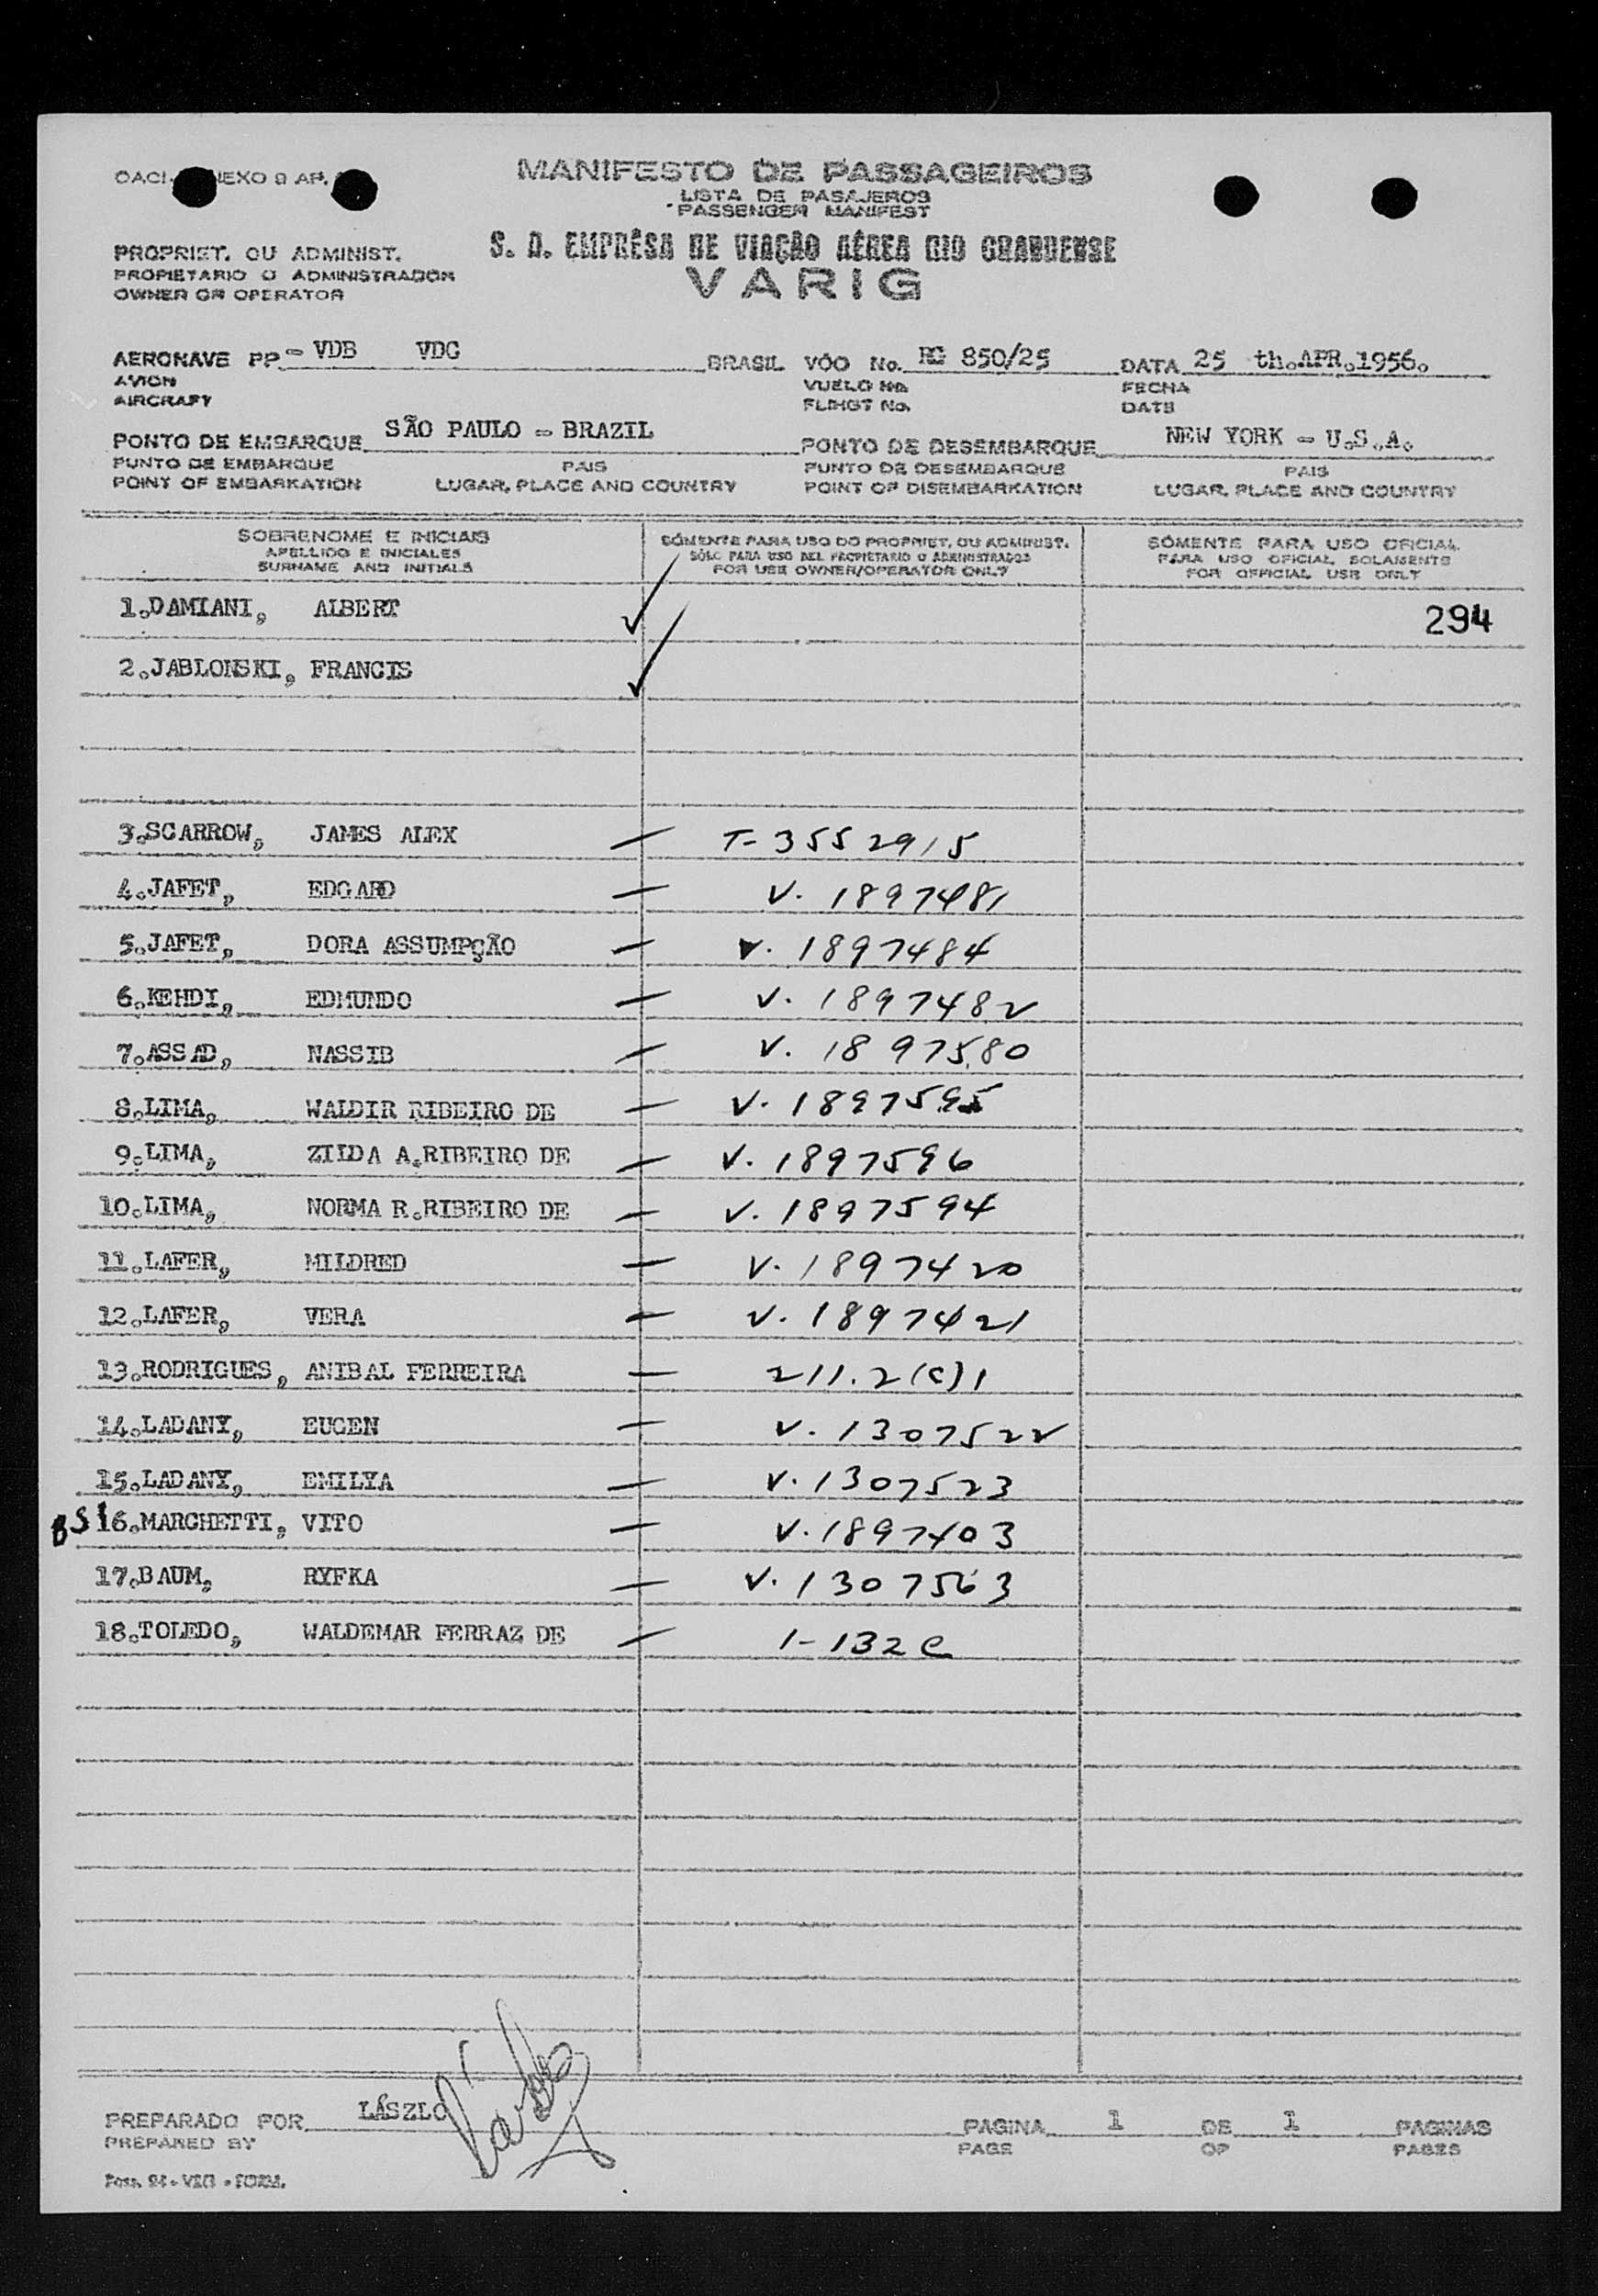 MANIFESTO DE PASSAGEIROS
LISTA DE PASAJEROS
PASSENGER MANIFEST
S. A. EMPRÊSA DE VIAÇÃO AÉREA RIO GRANDENSE
VARIG
PROPRIET. OU ADMINIST.
PROPIETARIO O ADMINISTRADOR
OWNER OR OPERATOR
AERONAVE PP - VDB VDG BRASIL VÔO No. RG 850/25 DATA 25 th.APR.1956.
AVION VUELO No. FECHA
AIRCRAFT FLIHGT No. DATE
PONTO DE EMBARQUE SÃO PAULO - BRAZIL PONTO DE DESEMBARQUE NEW YORK - U.S.A.
PUNTO DE EMBARQUE PAIS PUNTO DE DESEMBARQUE PAIS
POINT OF EMBARKATION LUGAR, PLACE AND COUNTRY POINT OF DISEMBARKATION LUGAR, PLACE AND COUNTRY
SOBRENOME E INICIAIS SÓMENTE PARA USO DO PROPRIET. OU ADMINIST. SÓMENTE PARA USO OFICIAL
APELLIDO E INICIALES SÓLO PARA USO DEL PROPIETARIO O ADMINISTRADOR PARA USO OFICIAL SOLAMENTE
SURNAME AND INITIALS FOR USE OWNER/OPERATOR ONLY FOR OFFICIAL USE ONLY
1.DAMIANI, ALBERT 294
2.JABLONSKI, FRANCIS
3.SCARROW, JAMES ALEX — T-3552915
4.JAFET, EDGARD — V. 1897481
5.JAFET, DORA ASSUMPÇÃO — V. 1897484
6.KEHDI, EDMUNDO — V. 1897482
7.ASSAD, NASSIB — V. 1897580
8.LIMA, WALDIR RIBEIRO DE — V. 1897595
9.LIMA, ZILDA A.RIBEIRO DE — V. 1897596
10.LIMA, NORMA R.RIBEIRO DE — V. 1897594
11.LAFER, MILDRED — V. 1897420
12.LAFER, VERA — V. 1897421
13.RODRIGUES, ANIBAL FERREIRA — 211.2(c)1
14.LADANY, EUGEN — V. 1307522
15.LADANY, EMILYA — V. 1307523
16.MARCHETTI, VITO — V. 1897403
17.BAUM, RYFKA — V. 1307563
18.TOLEDO, WALDEMAR FERRAZ DE — 1-132 C
PREPARADO POR LÁSZLO PAGINA 1 DE 1 PAGINAS
PREPARED BY PAGE OF PAGES